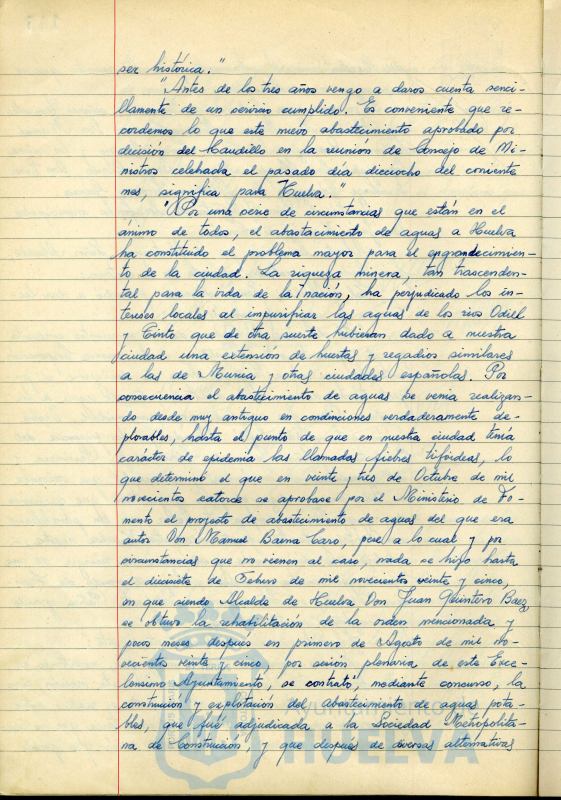 ser histórica."
"Antes de los tres años vengo a daros cuenta senci-
llamente de un servicio cumplido. Es conveniente que re-
cordemos lo que este nuevo abastecimiento aprobado por
decisión del Caudillo en la reunión de Consejo de Mi-
nistros celebrada el pasado día dieciocho del corriente
mes, significa para Huelva."
"Por una serie de circunstancias que están en el
ánimo de todos, el abastecimiento de aguas a Huelva
ha constituido el problema mayor para el engrandecimien-
to de la ciudad. La riqueza minera, tan trascenden-
tal para la vida de la nación, ha perjudicado los in-
tereses locales al impurificar las aguas de los rios Odiel
y Tinto que de otra suerte hubieran dado a nuestra
ciudad una extensión de huertas y regadios similares
a las de Murcia y otras ciudades españolas. Por
consecuencia el abastecimiento de aguas se venia realizan-
do desde muy antiguo en condiciones verdaderamente de-
plorables, hasta el punto de que en nuestra ciudad tenía
carácter de epidemia las llamadas fiebres tifóideas, lo
que determinó el que en veinte y tres de Octubre de mil
novecientos catorce se aprobase por el Ministerio de Fo-
mento el proyecto de abastecimiento de aguas del que era
autor Don Manuel Baena Caro, pese a lo cual y por
circunstancias que no vienen al caso, nada se hizo hasta
el diecisiete de Febrero de mil novecientos veinte y cinco,
en que siendo Alcalde de Huelva Don Juan Quintero Baez,
se obtuvo la rehabilitación de la orden mencionada y
pocos meses después en primero de Agosto de mil no-
vecientos veinte y cinco, por sesión plenaria de este Exce-
lentísimo Ayuntamiento, se contrató, mediante concurso, la
construcción y explotación del abastecimiento de aguas pota-
bles, que fué adjudicada a la Sociedad Metropolita-
na de Construcción, y que después de diversas alternativas
HUELVA